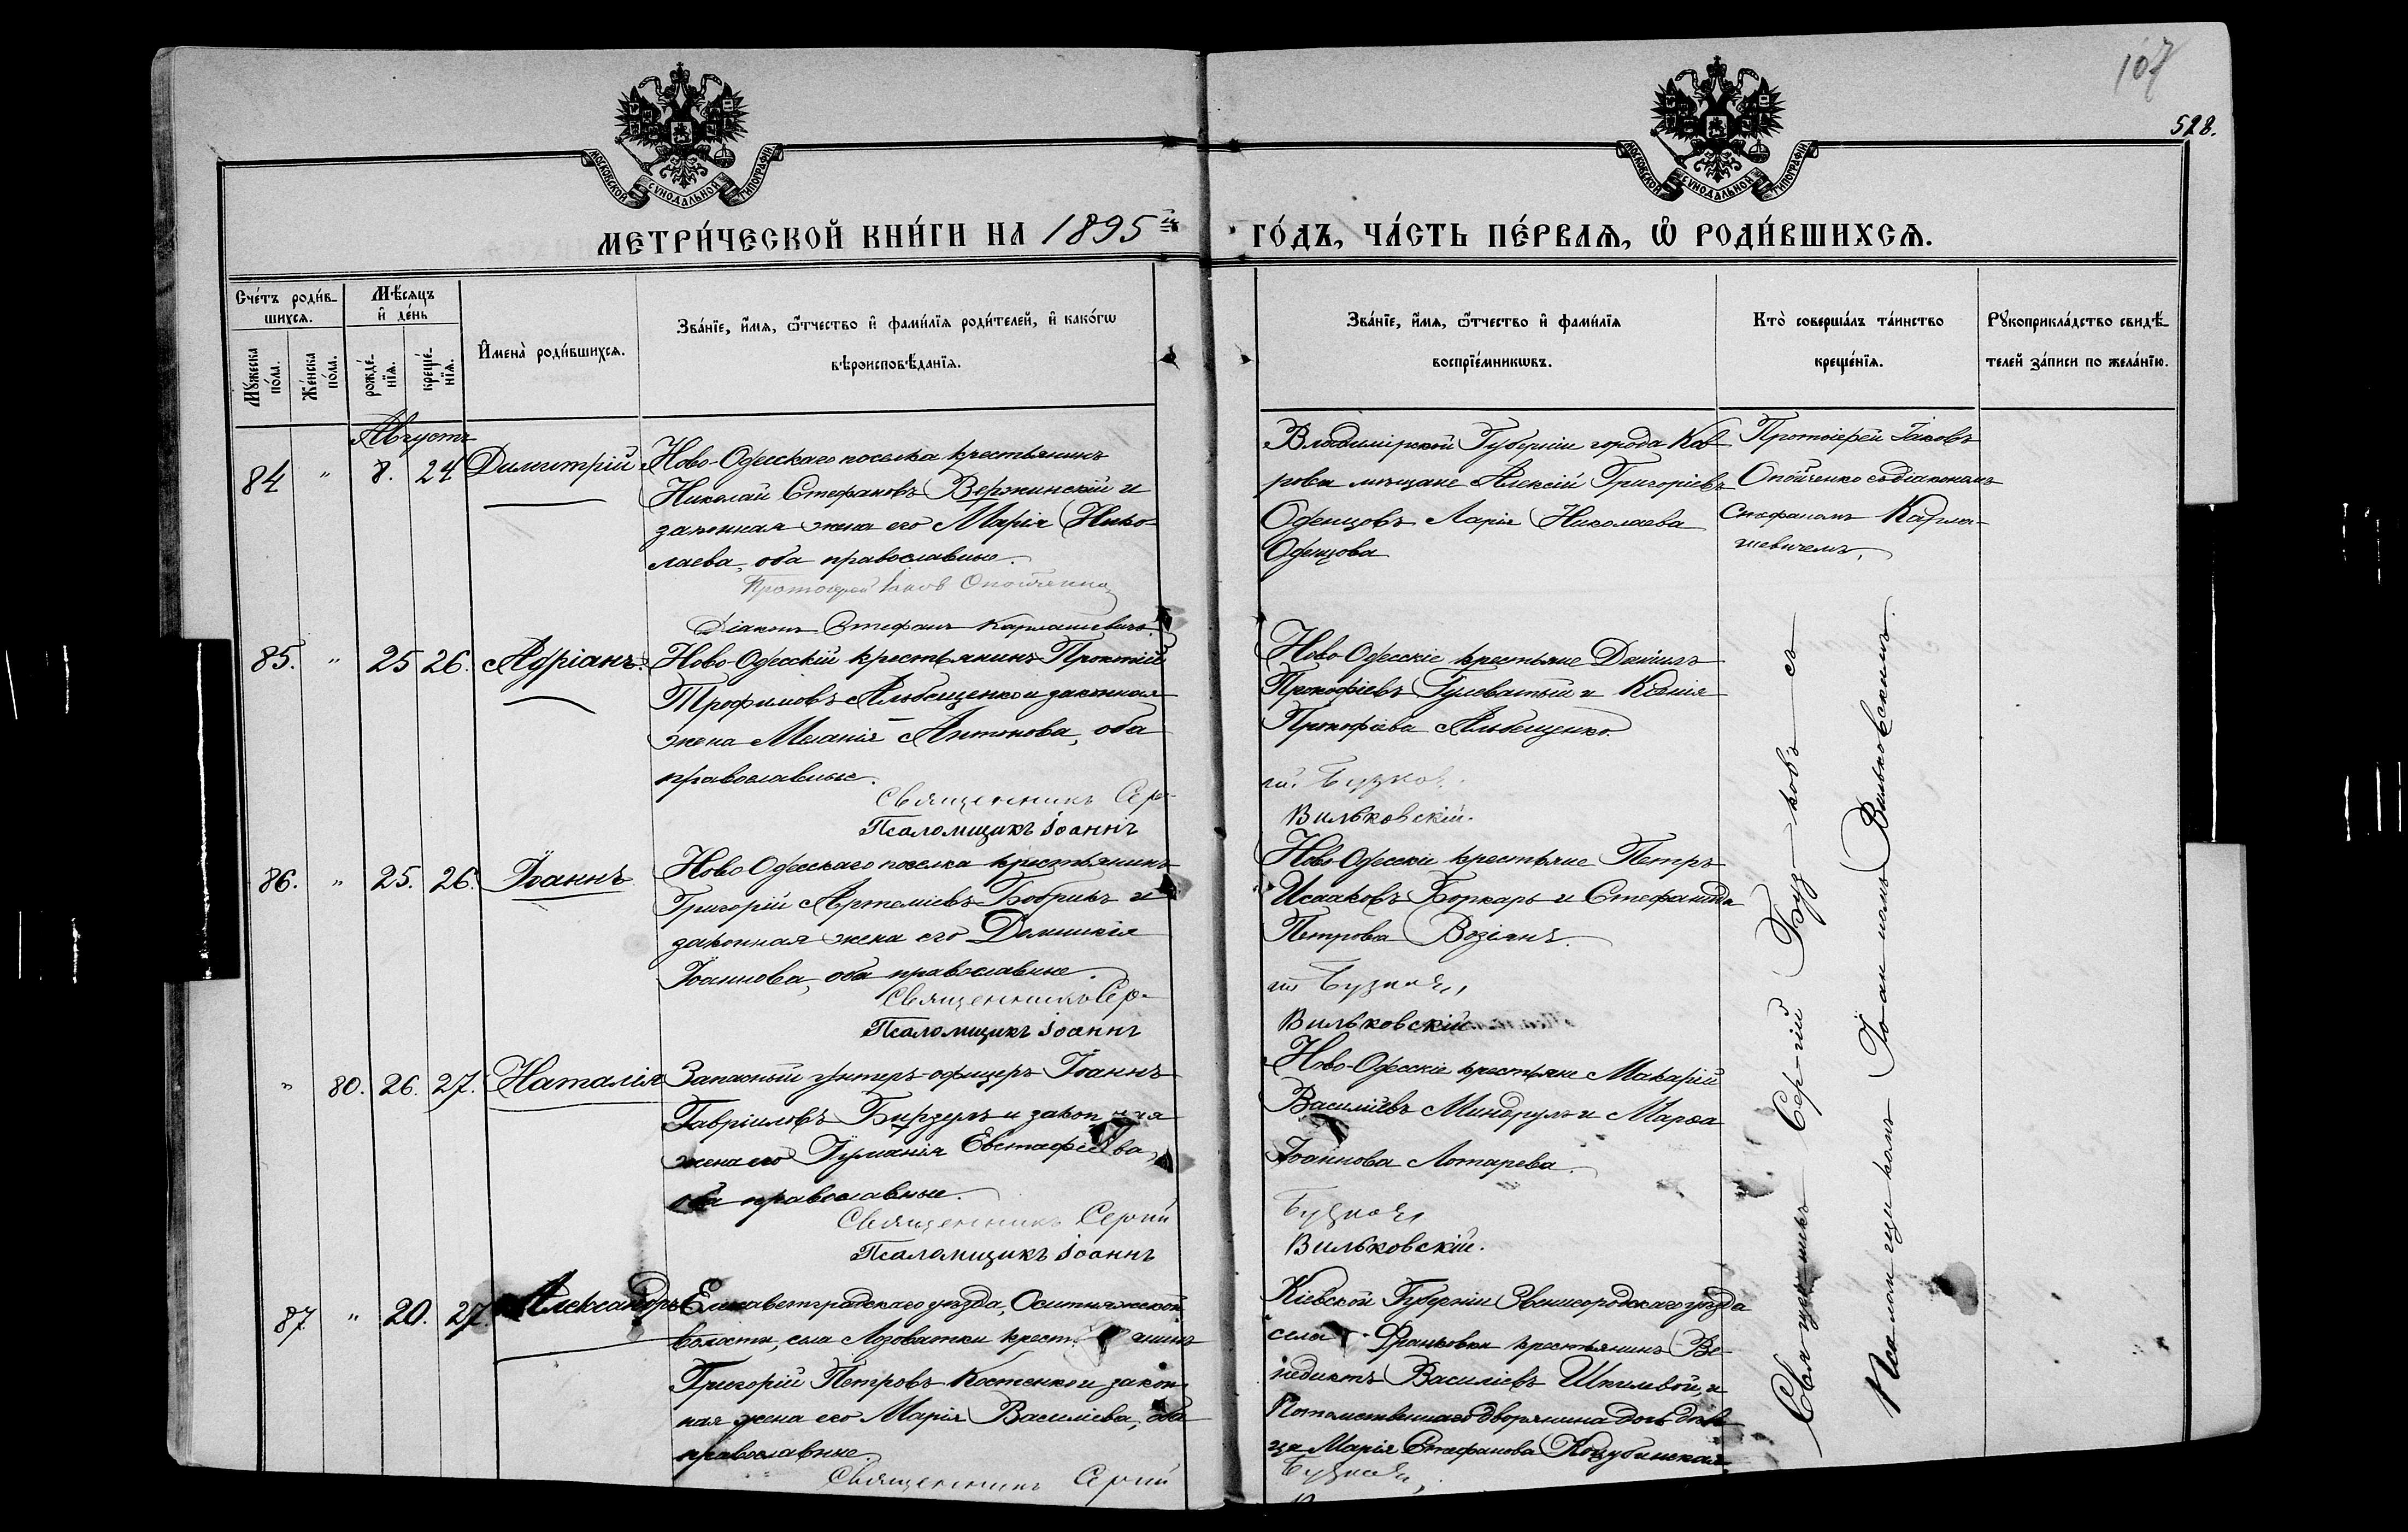 107
528.
МОСКОВСКОЙ СУНОДАЛЬНОЙ ТИПОГРАФІИ
МОСКОВСКОЙ СУНОДАЛЬНОЙ ТИПОГРАФІИ
МЕТРИ́ЧЕСКОЙ КНИ́ГИ НА 1895й
ГО́ДЪ, ЧА́СТЬ ПЕ́РВАѦ, Ѡ РОДИ́ВШИХСѦ.
Сче́тъ роди́в-
шихсѧ.
Мѣ́сѧцъ
и де́нь
Мꙋ́жеска по́ла.
Же́нска по́ла.
рожде́-нїѧ.
креще́-нїѧ.
Имена̀ роди́вшихсѧ.
Зва́нїе, и́мѧ, ѻ́тчество и фами́лїѧ роди́телей, и како́гѡ
вѣроисповѣ́данїѧ.
Зва́нїе, и́мѧ, ѻ́тчество и фами́лїѧ
воспрїе́мникѡвъ.
Кто̀ соверша́лъ та́инство
креще́нїѧ.
Рꙋкоприкла́дство свидѣ́-
телей за́писи по жела́нїю.
Августъ
84 " 8. 24 Димитрій
Ново-Одесскаго поселка крестьянинъ
Николай Стефановъ Вержинскій и
законная жена его Марія Нико-
лаева, оба православные.
Протоіерей Іаковъ Опойченко
Діаконъ Стефанъ Карпашевичъ
Владимірской Губерніи города Ков-
рова мещане Алексій Григоріевъ
Оденцовъ Марія Николаева
Оденцова
Протоіерей Іаковъ
Опойченко съ діакономъ
Стефаномъ Карпа-
шевичемъ.
85. " 25 26. Адріанъ.
Ново-Одесскій крестьянинъ Прокопій
Трофимовъ Альбещенко и законная
жена Меланія Антонова, оба
православные.
Священникъ Сер-
Псаломщикъ Іоаннъ
Ново-Одесскіе крестьяне Даніилъ
Прокофіевъ Гулеватый и Ксенія
Прокофіева Альбещенко.
гій Бузков
Вильковскій.
86. " 25. 26. Іоаннъ
Ново Одесскаго поселка крестьянинъ
Григорій Артеміевъ Бобрикъ и
законная жена его Домникія
Іоаннова, оба православные.
Священникъ Сер-
Псаломщикъ Іоаннъ
Ново-Одесскіе крестьяне Петръ
Исааковъ Боркарь и Стефанида
Петрова Возіянъ.
гій Бузковъ
Вильковскій
" 80. 26. 27. Наталія
Запасный унтеръ-офицеръ Іоаннъ
Гавріиловъ Бирзулъ и законная
жена его Іуліанія Евстафіева,
оба православные.
Священникъ Сергій
Псаломщикъ Іоаннъ
Ново-Одесскіе крестьяне Макарій
Василіевъ Миндрулъ и Марѳа
Іоаннова Лотарева.
Бузковъ
Вильковскій.
87. " 20. 27. Александръ
Елисаветградскаго уѣзда, Оситняжской
волости, села Лозоватки крестьянинъ
Григорій Петровъ Костенко и закон-
ная жена его Марія Василіева, оба
православные.
Священникъ Сергій
Кіевской Губерніи Звенигородскаго уѣзда
села Франковки крестьянинъ Ве-
недиктъ Василіевъ Шкилевой, и
Потомственнаго дворянина дочь дѣви-
ца Марія Стефанова Коцубинская.
Бузковъ
Священникъ Сергій Бузковъ съ
Псаломщикомъ Іоанномъ Вильковскимъ.